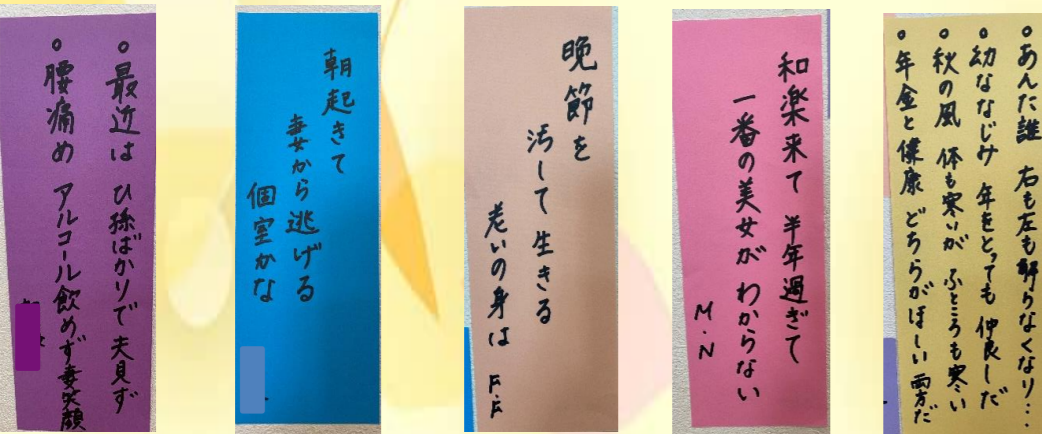 。あんた誰 右も左も解りなくなり・・
。幼ななじみ 年をとっても 仲良しだ
。秋の風 体も寒いが ふところも寒い
。年金と健康 どちらがほしい 両方だ
和楽来て 半年過ぎて
一番の美女が わからない
M.N
晩節を
汚して生きる
老いの身は F.F
朝起きて
妻から逃げる
個室かな
。最近は ひ孫ばかりで 夫見ず
。腰痛め アルコール飲めず妻笑顔